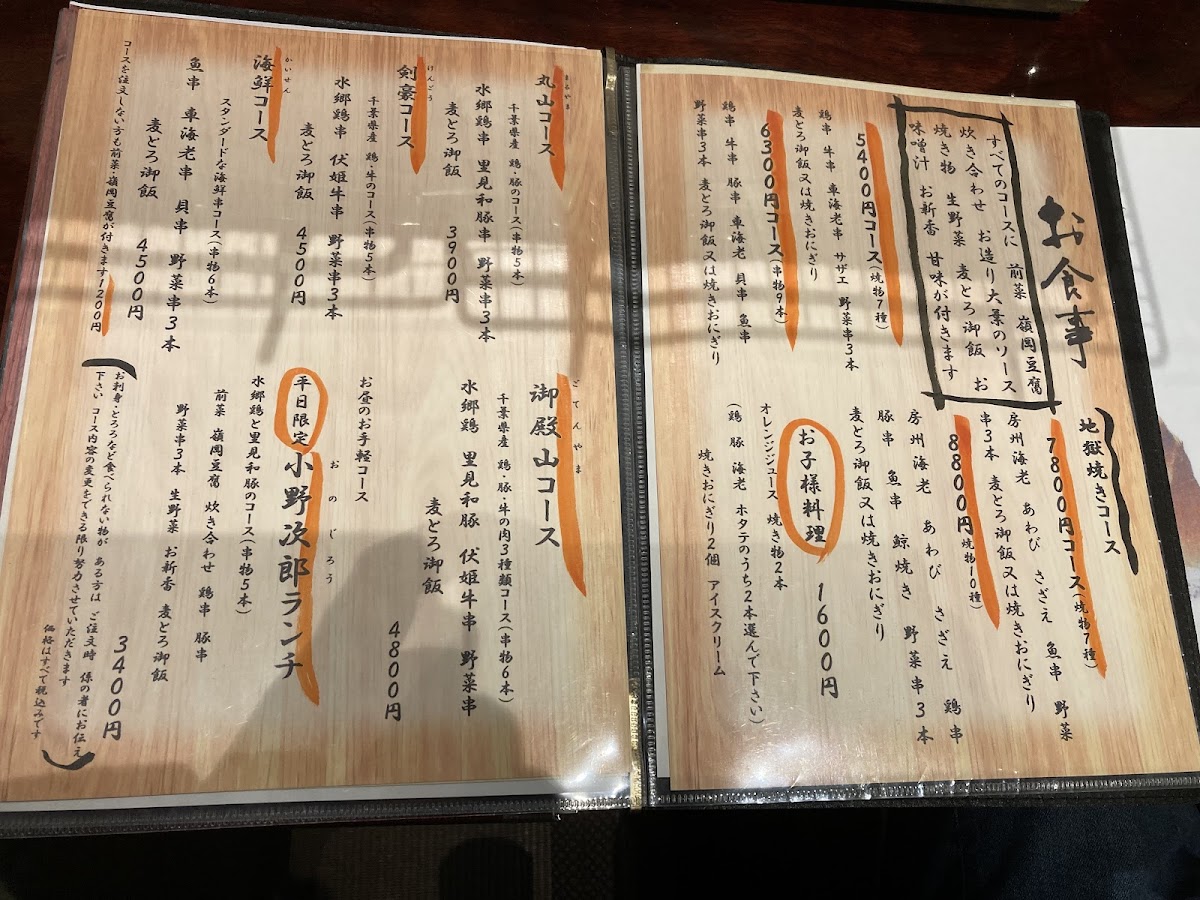 お食事
すべてのコースに 前菜 嶺岡豆腐
炊き合わせ お造り大葉のソース
焼き物 生野菜 麦とろ御飯 お
味噌汁 お新香 甘味が付きます
5400円コース(焼物7種)
鶏串 牛串 車海老串 サザエ 野菜串3本
麦とろ御飯又は焼きおにぎり
6300円コース(串物9本)
鶏串 牛串 豚串 車海老 貝串 魚串
野菜串3本 麦とろ御飯又は焼きおにぎり
地獄焼きコース
7800円コース(焼物7種)
房州海老 あわび さざえ 魚串 野菜
串3本 麦とろ御飯又は焼きおにぎり
8800円(焼物10種)
房州海老 あわび さざえ 鶏串
豚串 魚串 鯨焼き 野菜串3本
麦とろ御飯又は焼きおにぎり
お子様料理 1600円
オレンジジュース 焼き物2本
(鶏 豚 海老 ホタテのうち2本選んで下さい)
焼きおにぎり2個 アイスクリーム
まるやま
丸山コース
千葉県産 鶏・豚のコース(串物5本)
水郷鶏串 里見和豚串 野菜串3本
麦とろ御飯 3900円
けんごう
剣豪コース
千葉県産 鶏・牛のコース(串物5本)
水郷鶏串 伏姫牛串 野菜串3本
麦とろ御飯 4500円
かいせん
海鮮コース
スタンダードな海鮮串コース(串物6本)
魚串 車海老串 貝串 野菜串3本
麦とろ御飯 4500円
コースを注文しない方も前菜・嶺岡豆腐が付きます1200円
ごてんやま
御殿山コース
千葉県産 鶏・豚・牛の肉3種類コース(串物6本)
水郷鶏 里見和豚 伏姫牛串 野菜串
麦とろ御飯 4800円
お昼のお手軽コース
おのじろう
平日限定小野次郎ランチ
水郷鶏と里見和豚のコース(串物5本)
前菜 嶺岡豆腐 炊き合わせ 鶏串 豚串
野菜串3本 生野菜 お新香 麦とろ御飯
3400円
お刺身・とろろなど食べられない物が ある方は ご注文時 係の者にお伝え
下さい コース内容の変更をできる限り努力させていただきます
価格はすべて税込みです